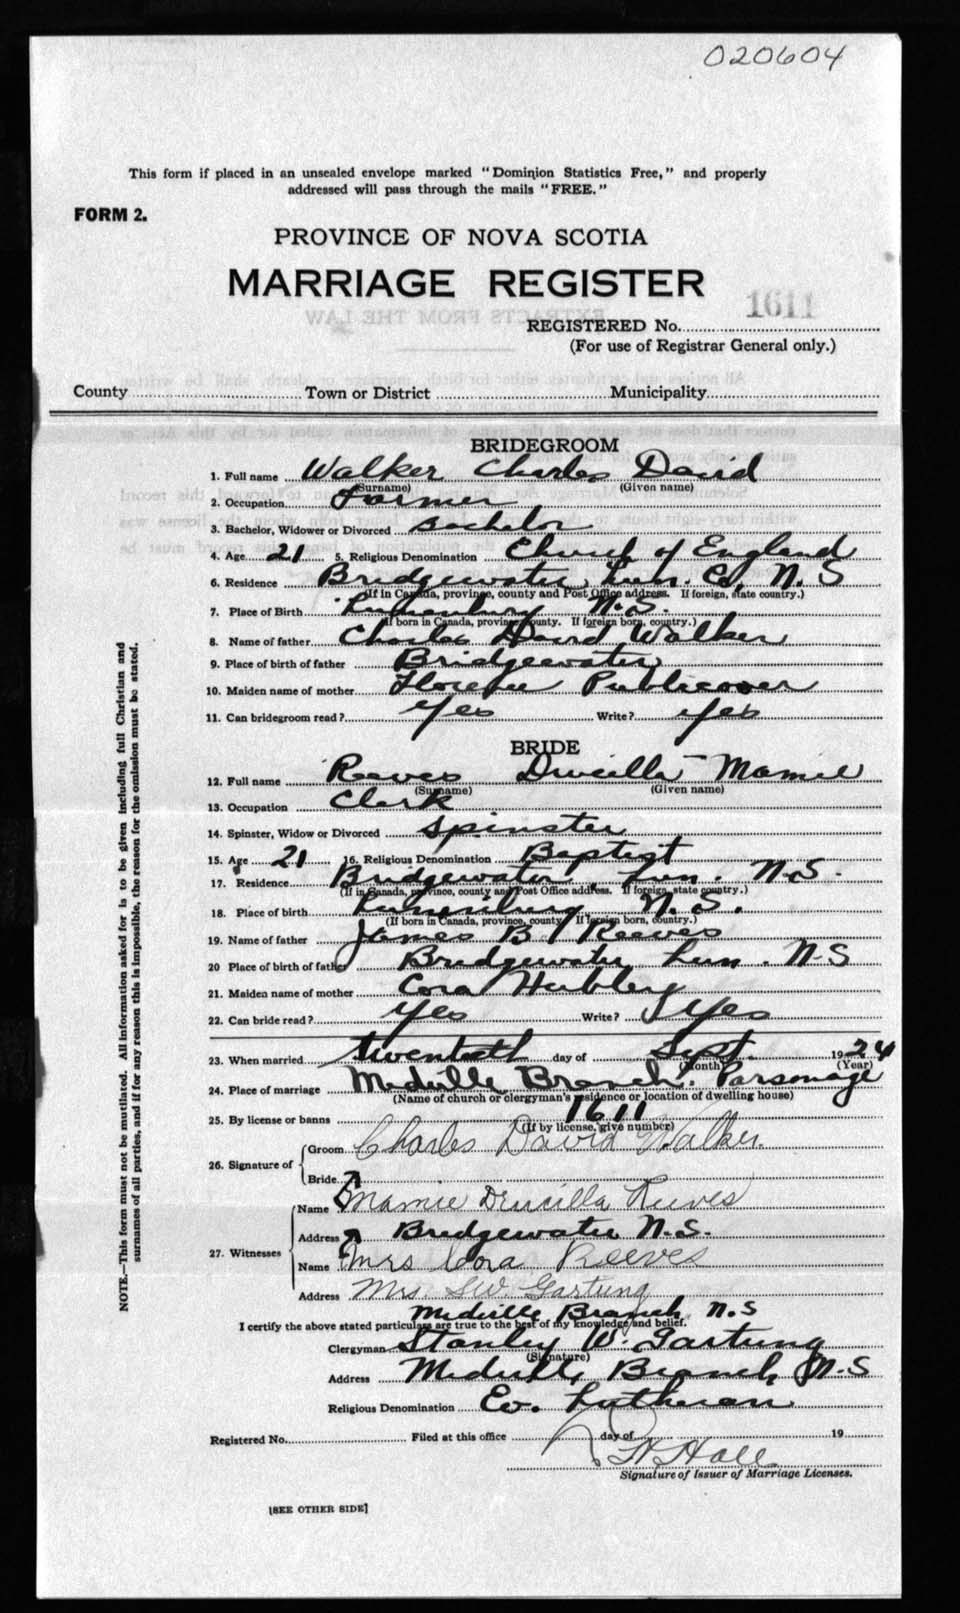 020604
This form if placed in an unsealed envelope marked "Dominion Statistics Free," and properly
addressed will pass through the mails "FREE."
FORM 2.
PROVINCE OF NOVA SCOTIA
MARRIAGE REGISTER
REGISTERED No. 1611
(For use of Registrar General only.)
County Town or District Municipality
BRIDEGROOM
1. Full name Walker Charles David
(Surname) (Given name)
2. Occupation Farmer
3. Bachelor, Widower or Divorced Bachelor
4. Age 21 5. Religious Denomination Church of England
6. Residence Bridgewater Lun. Co. N.S
(If in Canada, province, county and Post Office address. If foreign, state country.)
7. Place of Birth Lunenburg N.S.
(If born in Canada, province, county. If foreign born, country.)
8. Name of father Charles David Walker
9. Place of birth of father Bridgewater
10. Maiden name of mother Florence Publicover
11. Can bridegroom read? Yes Write? yes
BRIDE
12. Full name Reeves Drucilla Mamie
(Surname) (Given name)
13. Occupation Clerk
14. Spinster, Widow or Divorced Spinster
15. Age 21 16. Religious Denomination Baptist
17. Residence Bridgewater, Lun. N.S.
(If in Canada, province, county and Post Office address. If foreign, state country.)
18. Place of birth Lunenburg N.S.
(If born in Canada, province, county. If foreign born, country.)
19. Name of father James B. Reeves
20 Place of birth of father Bridgewater Lun. N.S
21. Maiden name of mother Cora Hebbley
22. Can bride read? Yes Write? Yes
23. When married twentieth day of Sept. 1924
(Month) (Year)
24. Place of marriage Midville Branch. Parsonage
(Name of church or clergyman's residence or location of dwelling house)
25. By license or banns 1611
(If by license, give number)
26. Signature of Groom Charles David Walker.
Bride
Name Mamie Drucilla Reeves
27. Witnesses Address Bridgewater N.S.
Name Mrs Cora Reeves
Address Mrs. S.W. Gartung
Midville Branch N.S
I certify the above stated particulars are true to the best of my knowledge and belief.
Clergyman Stanley W. Gartung
(Signature)
Address Midville Branch N.S
Religious Denomination Ev. Lutheran
Registered No. Filed at this office day of 19
Hall
Signature of Issuer of Marriage Licenses.
[SEE OTHER SIDE]
NOTE.—This form must not be mutilated. All information asked for is to be given including full Christian and
surnames of all parties, and if for any reason this is impossible, the reason for the omission must be stated.
EXTRACTS FROM THE LAW